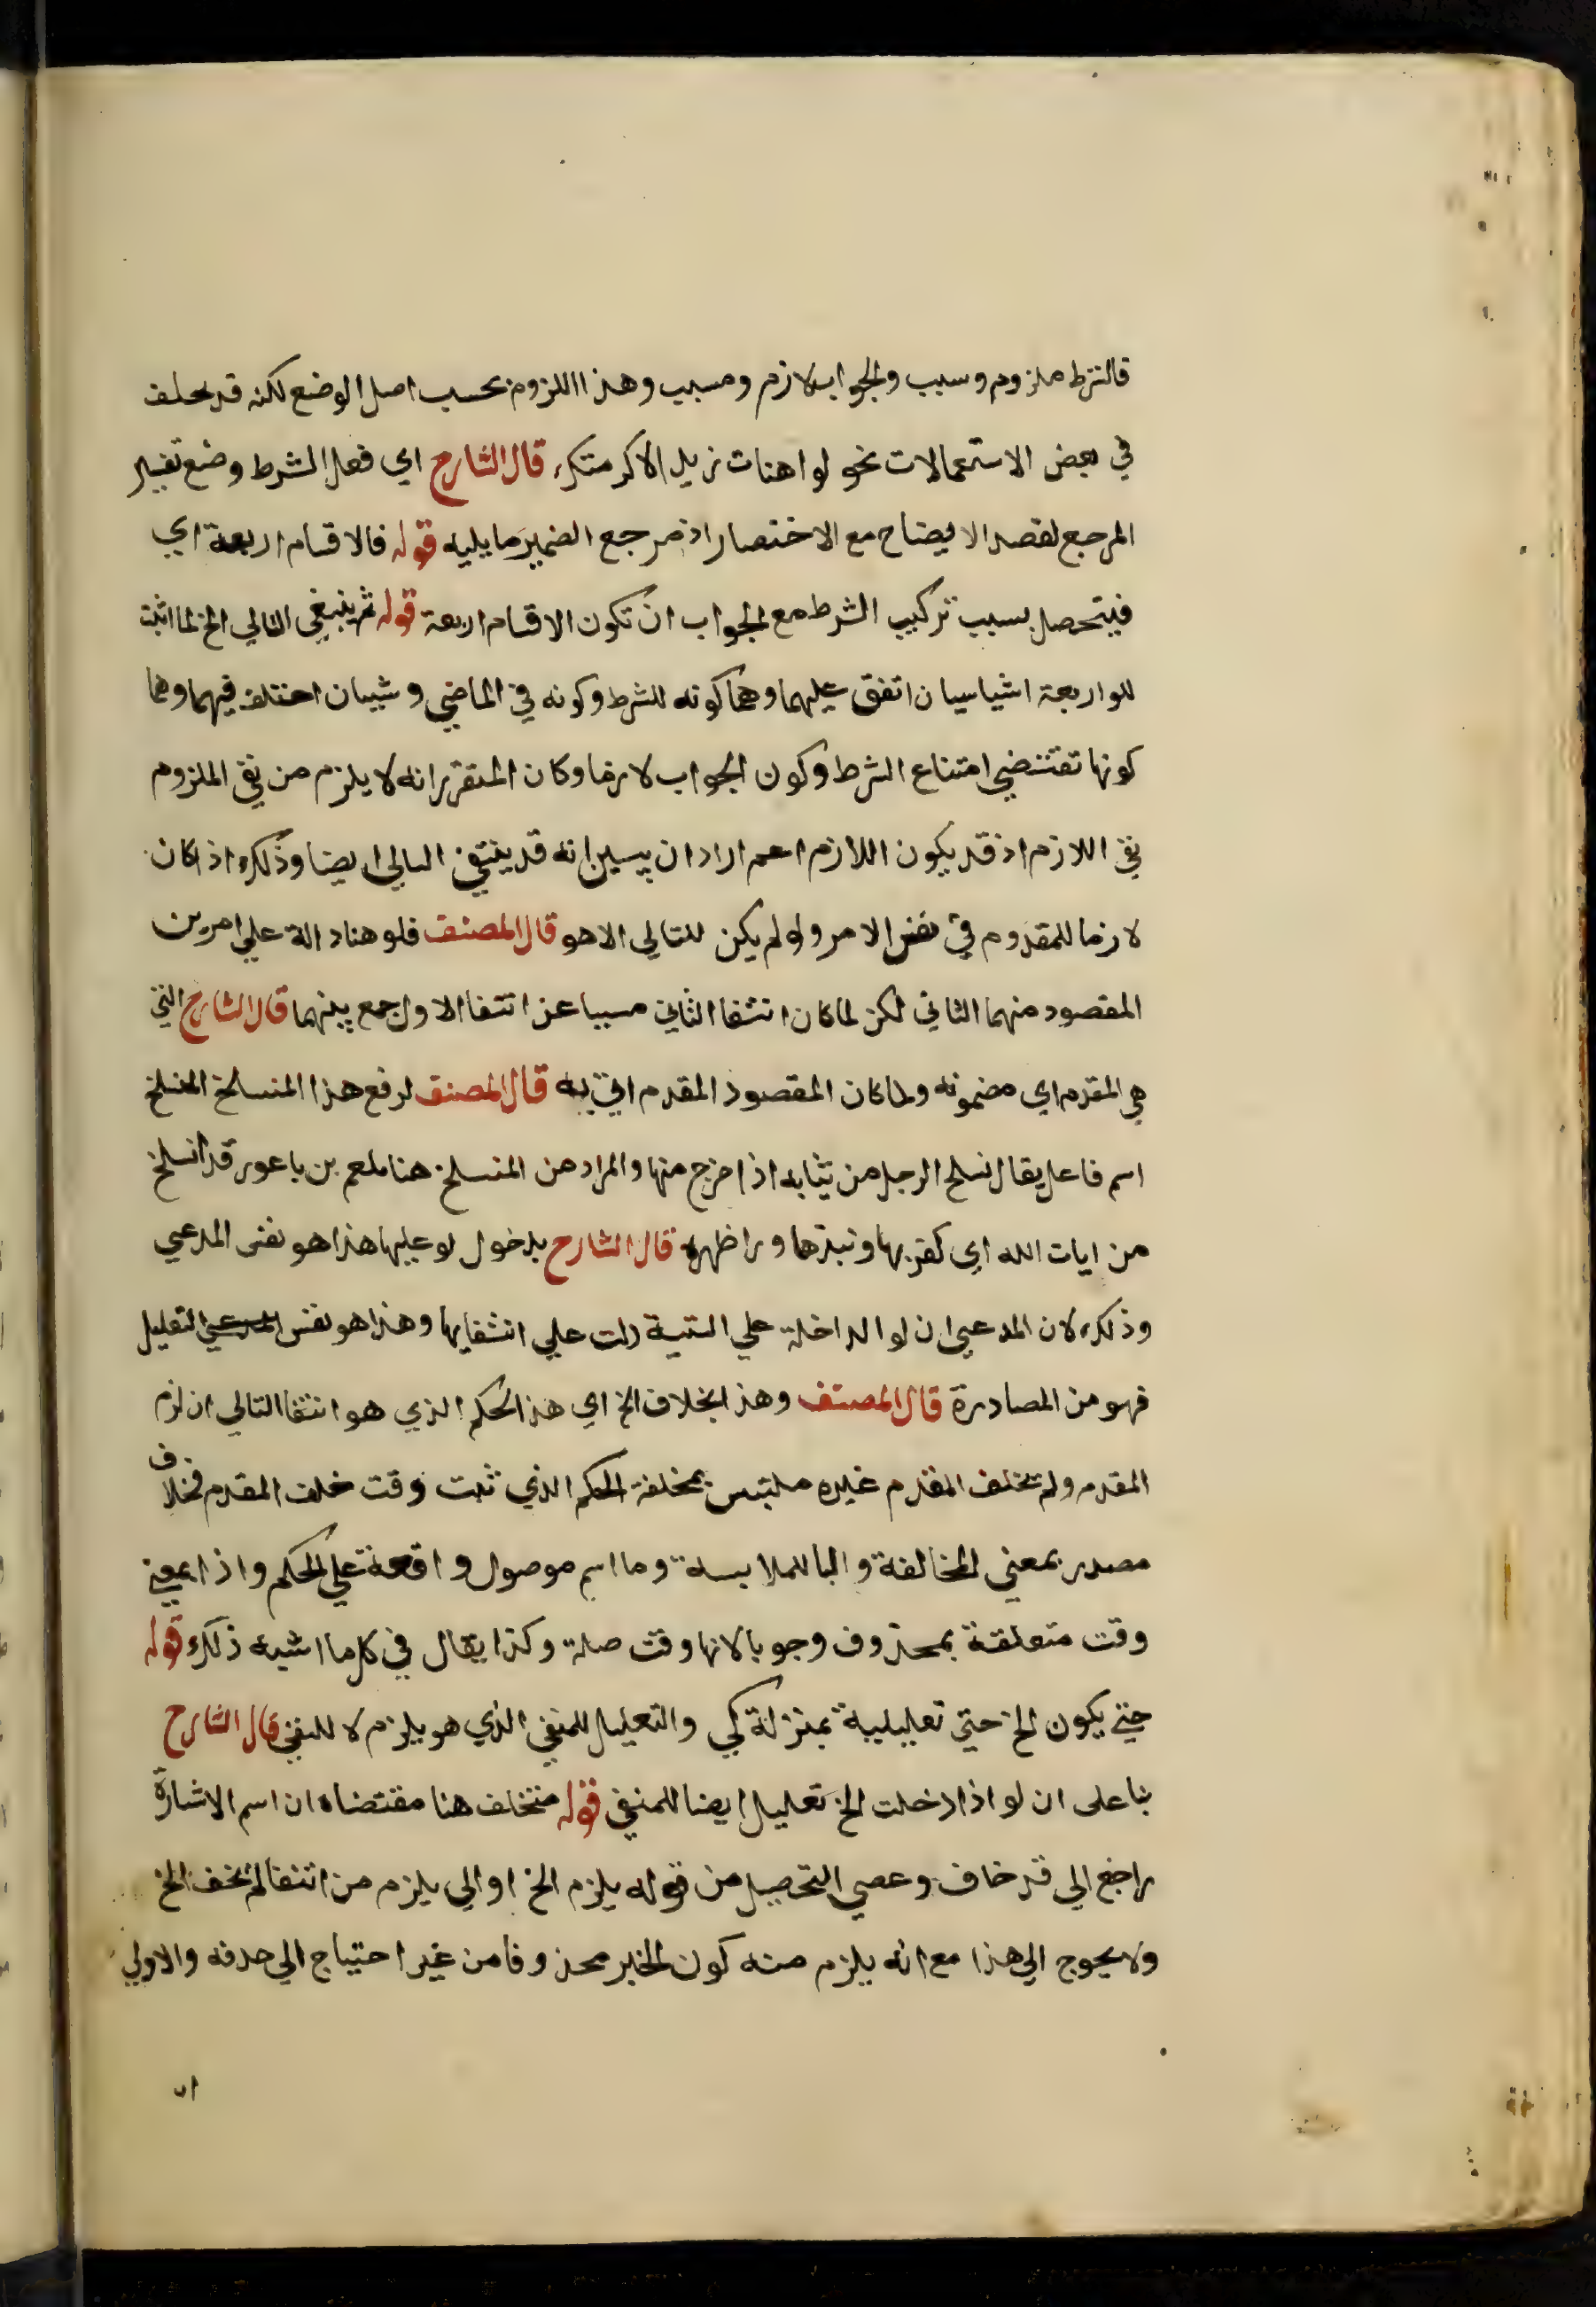 فالشرط ملزوم وسبب والجواب لازم ومسبب وهذا اللزوم بحسب اصل الوضع لكنه قد يخلف
في بعض الاستعمالات نحو لو اهنات زيد الاكرمتك قال الشارح اي فعل الشرط وضع تفسير
المرجع لقصد الايضاح مع الاختصار اذ مرجع الضمير ما يليه قوله فالاقسام اربعة اي
فيتحصل بسبب تركيب الشرط مع الجواب ان تكون الاقسام اربعة قوله ثم ينبغي التالي الخ لما اثبت
للو اربعة اشيا سيان اتفق عليهما وهما كونه للشرط وكونه في الماضي وشيان اختلف فيهما وهما
كونها تقتضي امتناع الشرط وكون الجواب لازما وكان المتقرر انه لا يلزم من نفي الملزوم
نفي اللازم اذ قد يكون اللازم اعم اراد ان يبين انه قد ينتفي التالي ايضا وذلك اذا كان
لازما للمقدوم في نفس الامر ولو لم يكن للتالي الا هو قال المصنف فلو هنا دالة علي امرين
المقصود منهما الثاني لكن لما كان انتفا الثاني مسببا عن انتفا الاول جمع بينهما قال الشارح التي
هي المقدم اي مضمونه ولما كان المقصود المقدم اتي به قال المصنف لرفع هذا المنسلخ المنسلخ
اسم فاعل يقال انسلخ الرجل من ثيابه اذا خرج منها والمراد من المنسلخ هنا بلعم بن باعور قد انسلخ
من ايات الله اي كفر بها ونبذها ورا ظهره قال الشارح بدخول لو عليها هذا هو نفس المدعي
وذلك لان المدعي ان لو الداخلة علي الستية دلت علي انتفايها وهذا هو نفس التعليل
فهو من المصادرة قال المصنف وهذا بخلاف الخ اي هذا الحكم الذي هو انتفا التالي ان لزم
المقدم ولم تخلف المقدم غيره ملتبس بمخلفة الحكم الذي ثبت وقت خلف المقدم فخلاف
مصدر بمعني المخالفة والبا للملابسة وما اسم موصول واقعة علي الحكم واذا بمعني
وقت متعلقة بمحذوف وجوبا لانها وقت صلة وكذا يقال في كل ما اشبه ذلك قوله
حتي يكون الخ حتي تعليلية بمنزلة كي والتعليل للمنفي الذي هو يلزم لا للنفي قال الشارح
بنا على ان لو اذا دخلت الخ تعليل ايضا للمنفي قوله منتخلف هنا مقتضاه ان اسم الاشارة
راجع الي قد خاف وعصي التحصيل من قوله يلزم الخ او الي يلزم من انتفا لم يخف الخ
ولا يحوج الي هذا مع انه يلزم منه كون الخبر محذوفا من غير احتياج الي حدفه والاولي
ان